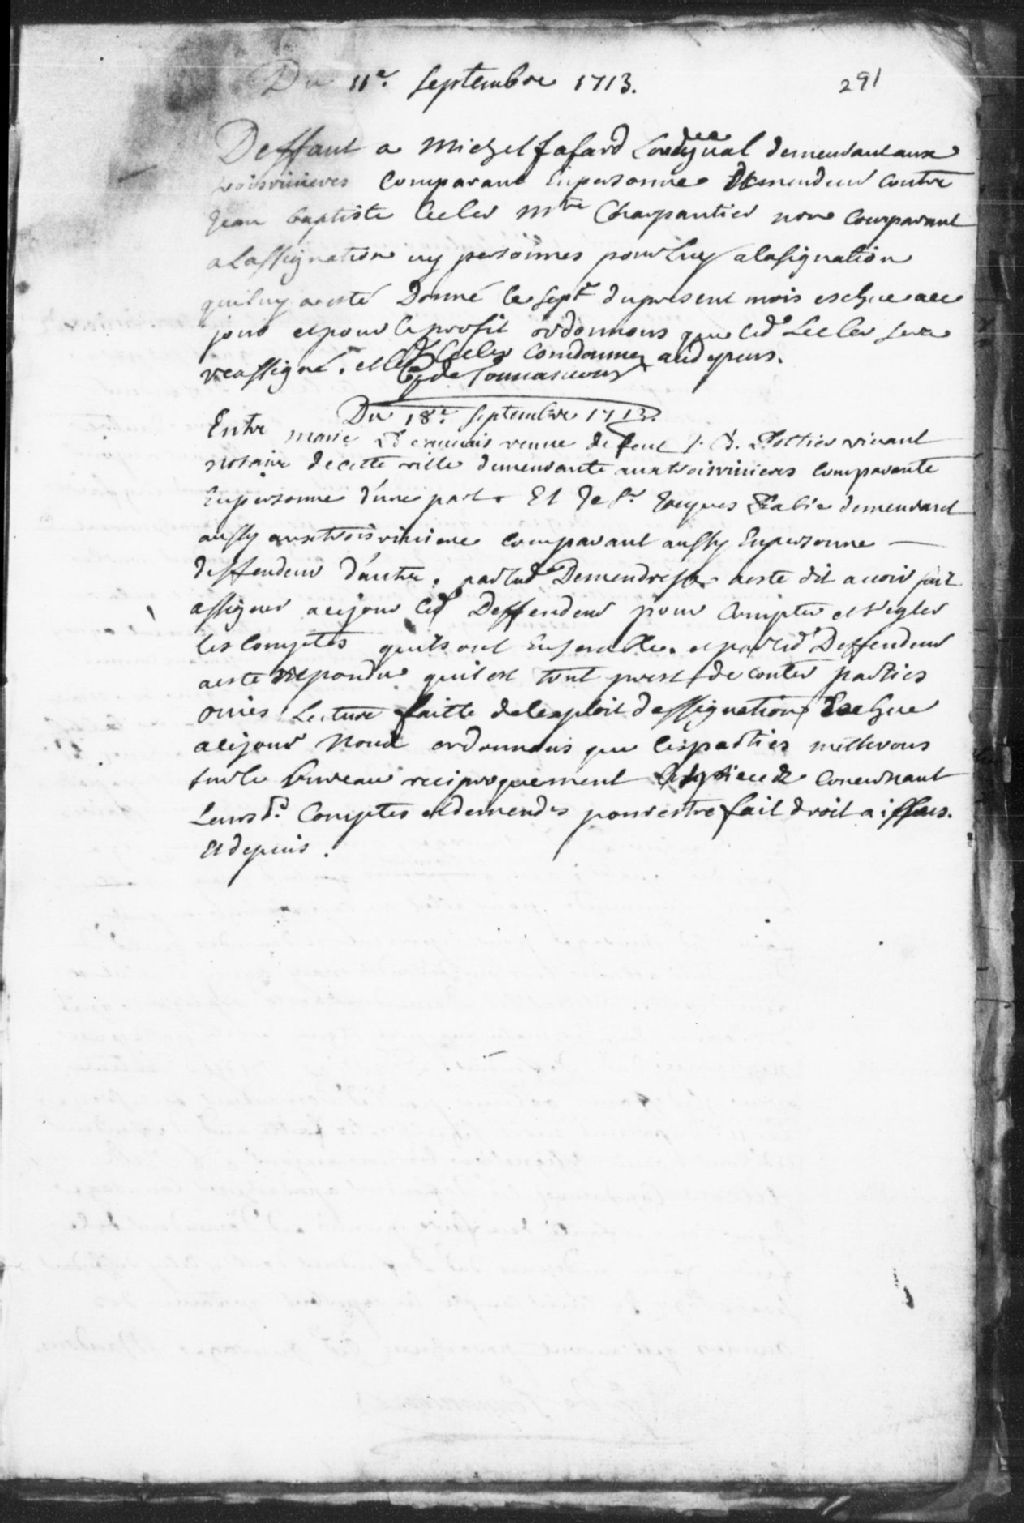 Du 11e. Septembre 1713.
291
Deffaut a Michel fafard demeurant aux
troisrivieres comparant Enpersonne demendeur contre
Jean baptiste lecler mtre Charpantier non comparant
a Lassignation ny personnes pour luy alasignation
quiluy a esté Donné le Sept.e dupresent mois escheue a ce
jour et pour le profit ordonnons que led. Lecler sera
reassigné. et led Lecler Comdamné aud depens.
de Tonnancour
Du 18e. Septembre 1713.
Entre marie veuve defeut vivant
notaire decette ville demeurante auxtroisrivieres comparente
Enpersonne d'une part. Et Le Sr Jacques demeurant
aussy auxtroisriviere comparant aussy Enpersonne
deffendeur d'autre. parlad Demendresse aesté dit avoir fait
assigner acejour led Deffendeur pour compter et regler
les comptes quils ont Ensemble. et parled Deffendeur
aesté repondu quil est tout prest de conter parties
ouies Lecture faitte del'exploit dassignation Escheue
acejour Nous ordonnons que lesparties mettrons
surle bureau reciproquement les piece concernant
Leursd. Comptes et demendes pourestre fait droit a iffeus.
Et depuis.